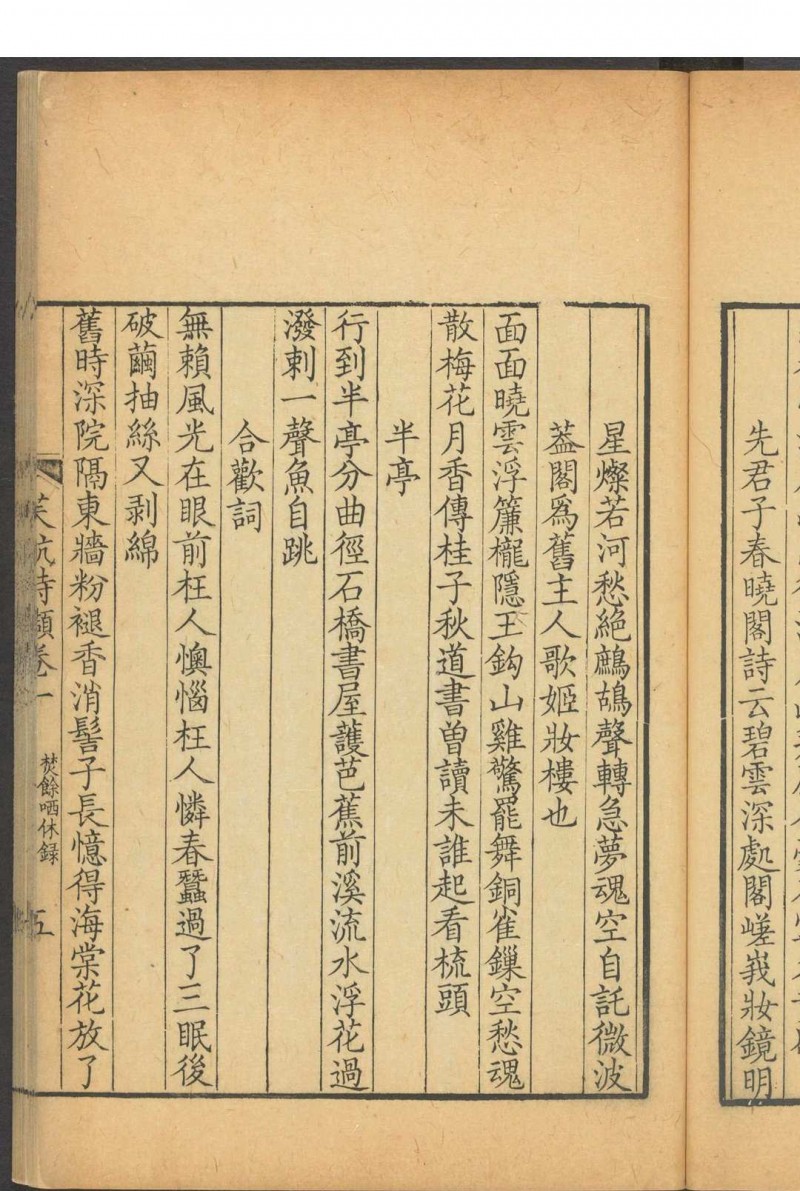 先君子春曉閣詩云碧雲深處閣嵯峩妝鏡明
星燦若河愁絕鷓鴣聲轉急夢魂空自託微波
葢閣爲舊主人歌姬妝樓也
面面曉雲浮簾櫳隱玉鈎山雞驚罷舞銅雀鏁空愁魂
散梅花月香傳桂子秋道書曾讀未誰起看梳頭
半亭
行到半亭分曲徑石橋書屋護芭蕉前溪流水浮花過
潑剌一聲魚自跳
合歡詞
無賴風光在眼前枉人懊惱枉人憐春蠶過了三眠後
破繭抽絲又剥綿
舊時深院隔東牆粉褪香消髻子長憶得海棠花放了
詩類卷一
焚餘哂休録
五